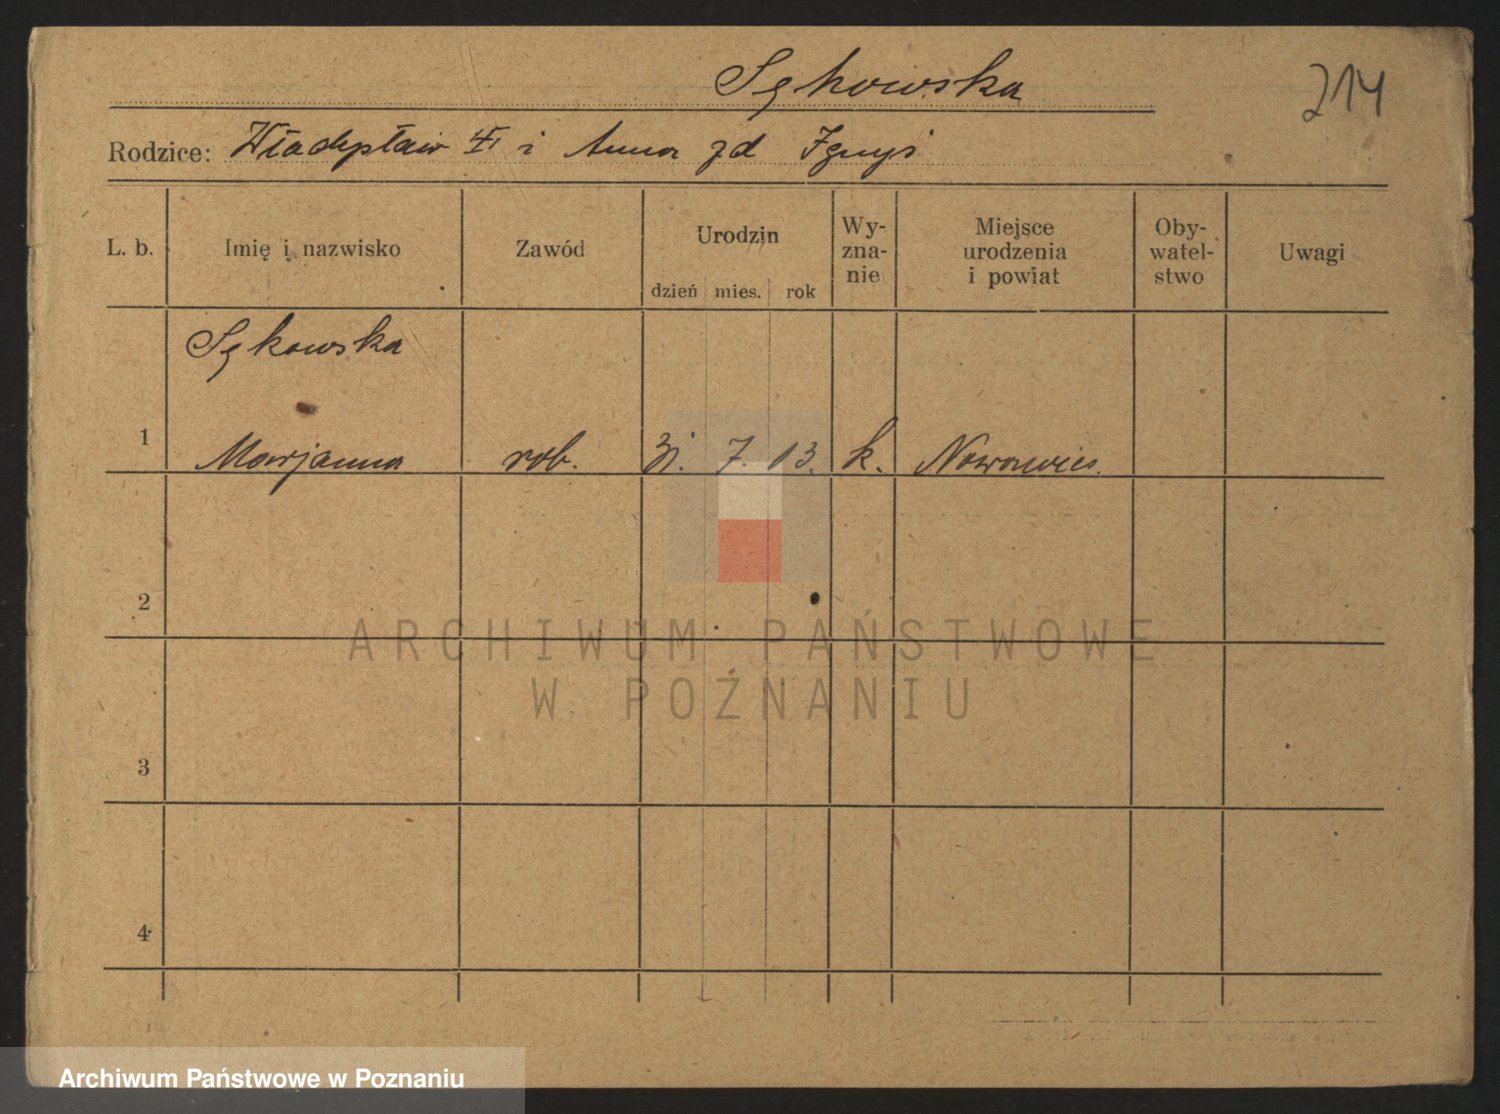 Sękowska
214
Rodzice: Władysław i Anna zd Ignyś
L. b. Imię i nazwisko Zawód Urodzin dzień mies. rok Wy-zna-nie Miejsce urodzenia i powiat Oby-watel-stwo Uwagi
Sękowska
1 Marjanna rob. 31. 7. 13. k. Nowawieś
2
ARCHIWUM PAŃSTWOWE
W POZNANIU
3
4
Archiwum Państwowe w Poznaniu